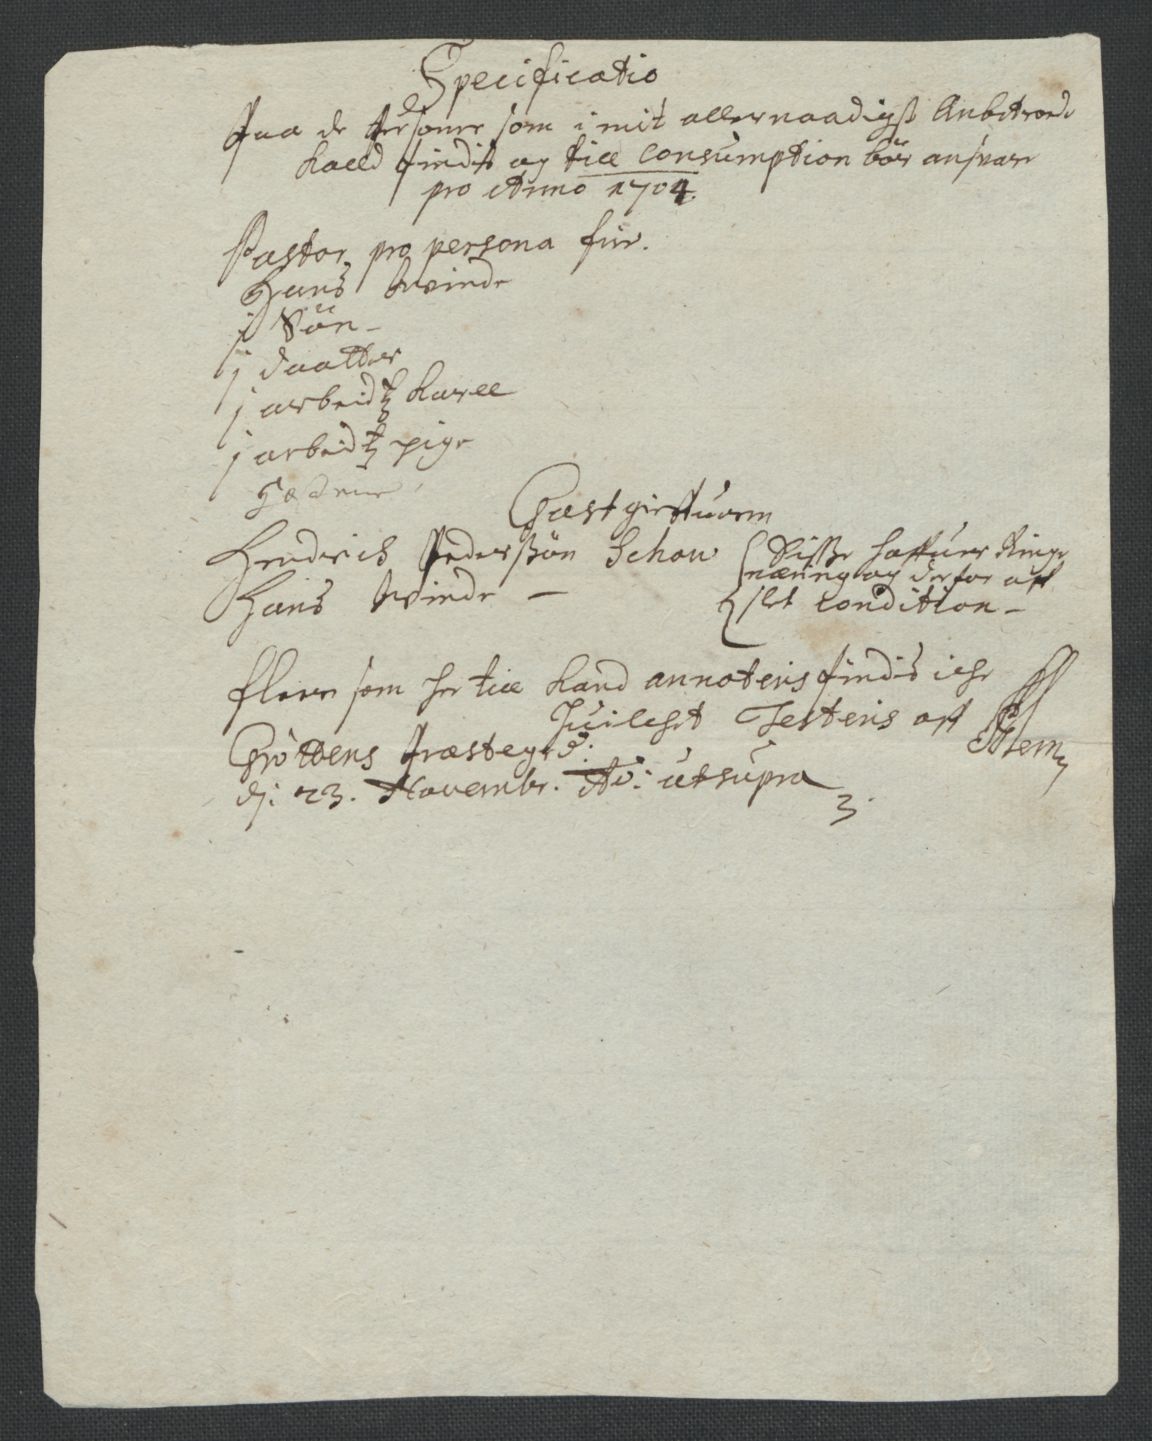 Specificatio
Paa de Personer som i mit allernaadigst Anbetroede
kald findis og till Consumption bør ansvare
pro Anno 1704.
Pastor pro persona sin.
Hans Qvinde
j Søn -
j daatter
j arbeidtz karll
j arbeidtz pige
Giestgiefuern
Hendrich Pederssøn Schou
Disse hafuer Ringe
næring og derfor aff
slet Condition -
Hans Qvinde -
flere som her till kand annoteris findis iche
Huilchet Testeris aff
Grøttens Præstegrd.
dj: 23. Novembr. Ao: utsupra